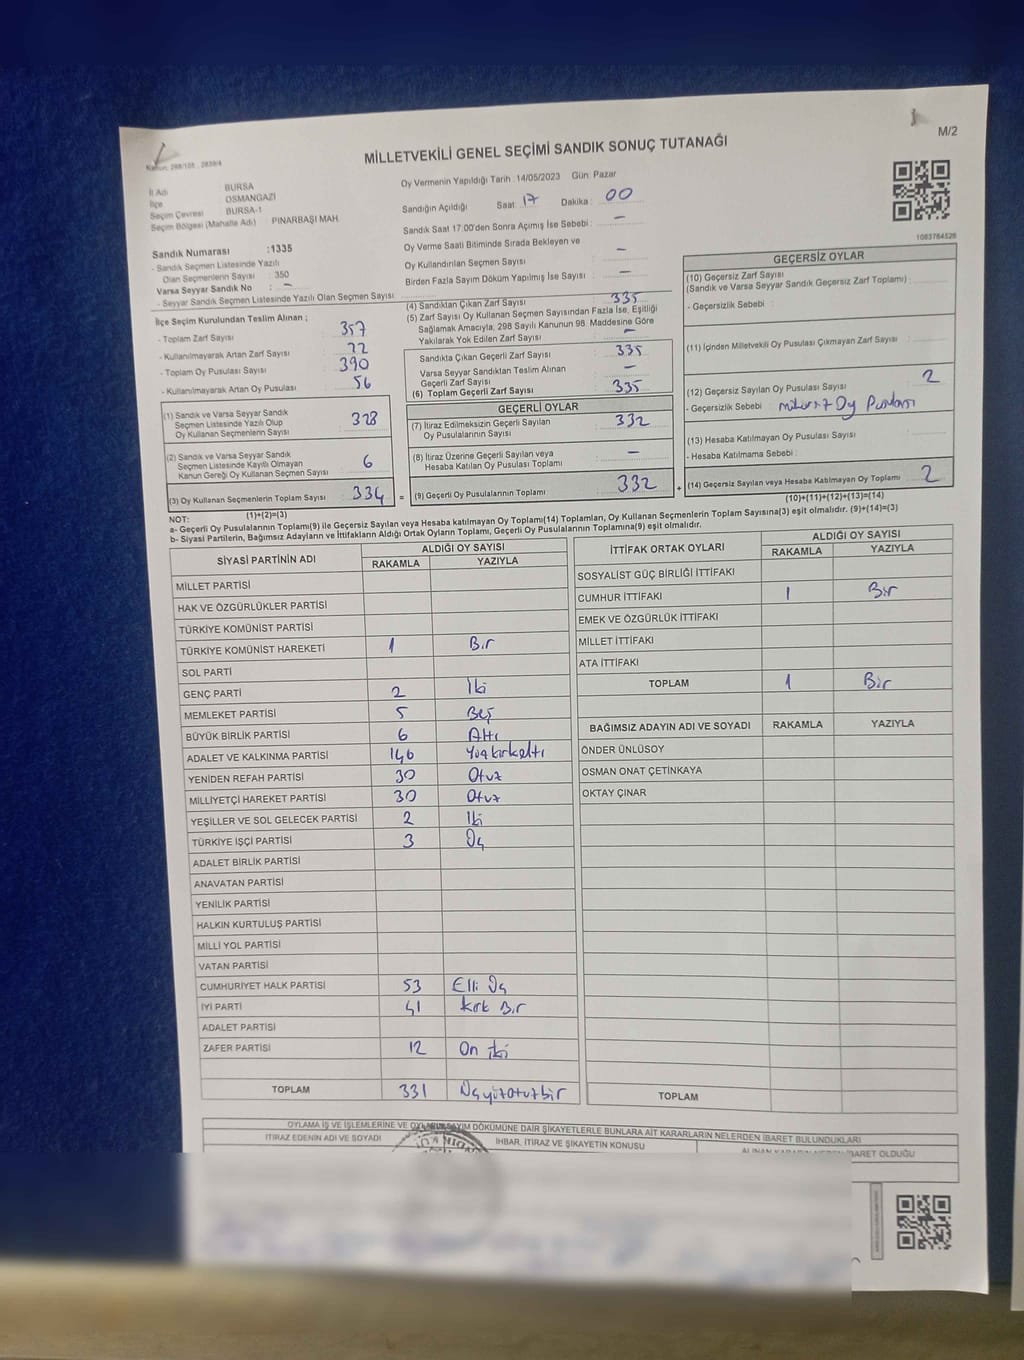 M/2
MİLLETVEKİLİ GENEL SEÇİMİ SANDIK SONUÇ TUTANAĞI
İl Adı BURSA
İlçe OSMANGAZİ
Seçim Çevresi BURSA-1
Seçim Bölgesi (Mahalle Adı) PINARBAŞI MAH.
Sandık Numarası :1335
- Sandık Seçmen Listesinde Yazılı
Olan Seçmenlerin Sayısı : 350
Varsa Seyyar Sandık No : –
- Seyyar Sandık Seçmen Listesinde Yazılı Olan Seçmen Sayısı
Oy Vermenin Yapıldığı Tarih : 14/05/2023 Gün: Pazar
Sandığın Açıldığı Saat: 17 Dakika : 00
Sandık Saat 17:00'den Sonra Açımış İse Sebebi : –
Oy Verme Saati Bitiminde Sırada Bekleyen ve
Oy Kullandırılan Seçmen Sayısı : –
Birden Fazla Sayım Döküm Yapılmış İse Sayısı : –
1083764526
İlçe Seçim Kurulundan Teslim Alınan ;
- Toplam Zarf Sayısı : 357
- Kullanılmayarak Artan Zarf Sayısı : 22
- Toplam Oy Pusulası Sayısı : 390
- Kullanılmayarak Artan Oy Pusulası : 56
(1) Sandık ve Varsa Seyyar Sandık
Seçmen Listesinde Yazılı Olup
Oy Kullanan Seçmenlerin Sayısı 328
(2) Sandık ve Varsa Seyyar Sandık
Seçmen Listesinde Kayıtlı Olmayan
Kanun Gereği Oy Kullanan Seçmen Sayısı 6
(3) Oy Kullanan Seçmenlerin Toplam Sayısı 334 =
(1)+(2)=(3)
(4) Sandıktan Çıkan Zarf Sayısı : 335
(5) Zarf Sayısı Oy Kullanan Seçmen Sayısından Fazla İse, Eşitliği
Sağlamak Amacıyla, 298 Sayılı Kanunun 98. Maddesine Göre
Yakılarak Yok Edilen Zarf Sayısı : –
Sandıkta Çıkan Geçerli Zarf Sayısı : 335
Varsa Seyyar Sandıktan Teslim Alınan
Geçerli Zarf Sayısı : –
(6) Toplam Geçerli Zarf Sayısı : 335
GEÇERLİ OYLAR
(7) İtiraz Edilmeksizin Geçerli Sayılan
Oy Pusulalarının Sayısı : 332
(8) İtiraz Üzerine Geçerli Sayılan veya
Hesaba Katılan Oy Pusulası Toplamı : –
(9) Geçerli Oy Pusulalarının Toplamı : 332 +
GEÇERSİZ OYLAR
(10) Geçersiz Zarf Sayısı
(Sandık ve Varsa Seyyar Sandık Geçersiz Zarf Toplamı) :
- Geçersizlik Sebebi :
(11) İçinden Milletvekili Oy Pusulası Çıkmayan Zarf Sayısı :
(12) Geçersiz Sayılan Oy Pusulası Sayısı : 2
- Geçersizlik Sebebi : Oy Pusulası
(13) Hesaba Katılmayan Oy Pusulası Sayısı :
- Hesaba Katılmama Sebebi :
(14) Geçersiz Sayılan veya Hesaba Katılmayan Oy Toplamı : 2
(10)+(11)+(12)+(13)=(14)
NOT:
a- Geçerli Oy Pusulalarının Toplamı(9) ile Geçersiz Sayılan veya Hesaba katılmayan Oy Toplamı(14) Toplamları, Oy Kullanan Seçmenlerin Toplam Sayısına(3) eşit olmalıdır. (9)+(14)=(3)
b- Siyasi Partilerin, Bağımsız Adayların ve İttifakların Aldığı Ortak Oyların Toplamı, Geçerli Oy Pusulalarının Toplamına(9) eşit olmalıdır.
SİYASİ PARTİNİN ADI ALDIĞI OY SAYISI
RAKAMLA YAZIYLA
MİLLET PARTİSİ
HAK VE ÖZGÜRLÜKLER PARTİSİ
TÜRKİYE KOMÜNİST PARTİSİ
TÜRKİYE KOMÜNİST HAREKETİ 1 Bir
SOL PARTİ
GENÇ PARTİ 2 İki
MEMLEKET PARTİSİ 5 Beş
BÜYÜK BİRLİK PARTİSİ 6 Altı
ADALET VE KALKINMA PARTİSİ 146 Yüzkırkaltı
YENİDEN REFAH PARTİSİ 30 Otuz
MİLLİYETÇİ HAREKET PARTİSİ 30 Otuz
YEŞİLLER VE SOL GELECEK PARTİSİ 2 İki
TÜRKİYE İŞÇİ PARTİSİ 3 Üç
ADALET BİRLİK PARTİSİ
ANAVATAN PARTİSİ
YENİLİK PARTİSİ
HALKIN KURTULUŞ PARTİSİ
MİLLİ YOL PARTİSİ
VATAN PARTİSİ
CUMHURİYET HALK PARTİSİ 53 Elli Üç
İYİ PARTİ 41 Kırk Bir
ADALET PARTİSİ
ZAFER PARTİSİ 12 On iki
TOPLAM 331 Üçyüzotuzbir
İTTİFAK ORTAK OYLARI ALDIĞI OY SAYISI
RAKAMLA YAZIYLA
SOSYALİST GÜÇ BİRLİĞİ İTTİFAKI
CUMHUR İTTİFAKI 1 Bir
EMEK VE ÖZGÜRLÜK İTTİFAKI
MİLLET İTTİFAKI
ATA İTTİFAKI
TOPLAM 1 Bir
BAĞIMSIZ ADAYIN ADI VE SOYADI RAKAMLA YAZIYLA
ÖNDER ÜNLÜSOY
OSMAN ONAT ÇETİNKAYA
OKTAY ÇINAR
TOPLAM
OYLAMA İŞ VE İŞLEMLERİNE VE OYLARIN SAYIM DÖKÜMÜNE DAİR ŞİKAYETLERLE BUNLARA AİT KARARLARIN NELERDEN İBARET BULUNDUKLARI
İTİRAZ EDENİN ADI VE SOYADI İHBAR, İTİRAZ VE ŞİKAYETİN KONUSU